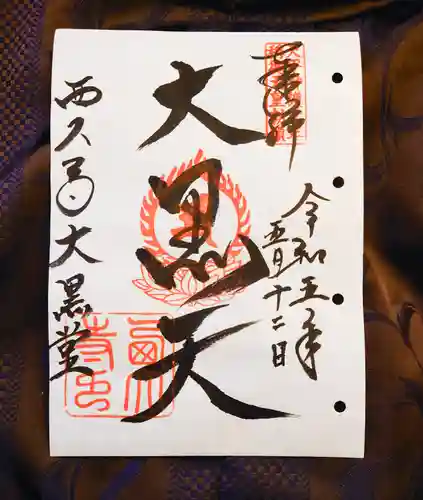 奉拝
令和五年
五月十二日
大黒天
西久寺大黒堂